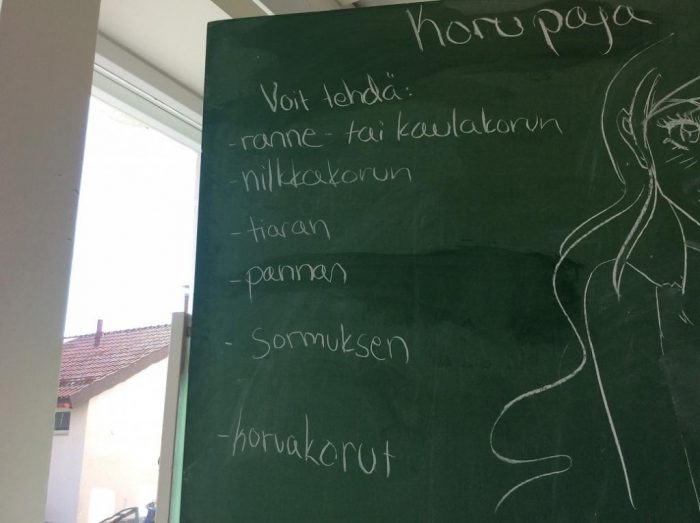 Korupaja
Voit tehdä:
-ranne- tai kaulakorun
-nilkkakorun
-tiaran
-pannan
- sormuksen
-korvakorut